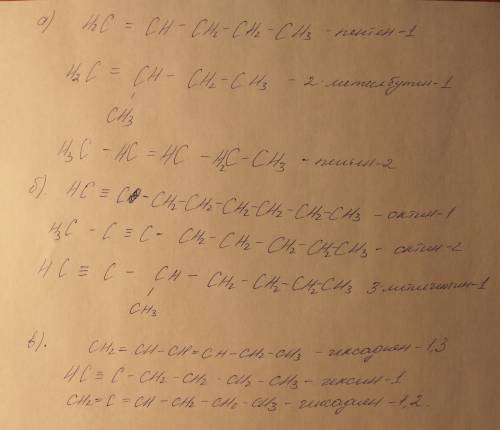 а) H₂C = CH - CH₂ - CH₂ - CH₃ - пентен-1
H₂C = CH - CH₂ - CH₃ - 2-метилбутен-1
CH₃
H₃C - HC = HC - H₂C - CH₃ - пентен-2
б). HC ≡ C - CH₂ - CH₂ - CH₂ - CH₂ - CH₂ - CH₃ - октин-1
H₃C - C ≡ C - CH₂ - CH₂ - CH₂ - CH₂ - CH₃ - октин-2
HC ≡ C - CH - CH₂ - CH₂ - CH₂ - CH₃ 3-метилгептин-1
CH₃
в). CH₂ = CH - CH = CH - CH₂ - CH₃ - гексадиен-1,3
HC ≡ C - CH₂ - CH₂ - CH₂ - CH₃ - гексин-1
CH₂ = C = CH - CH₂ - CH₂ - CH₃ - гексадиен-1,2.